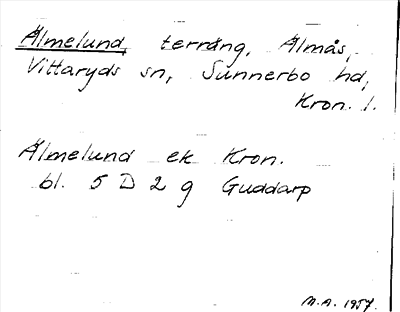 Älmelund, terräng, Älmås,
Vittaryds sn, Sunnerbo hd,
Kron. l.
Älmelund ek Kron.
bl. 5 D 2 g Guddarp
M.A. 1957.